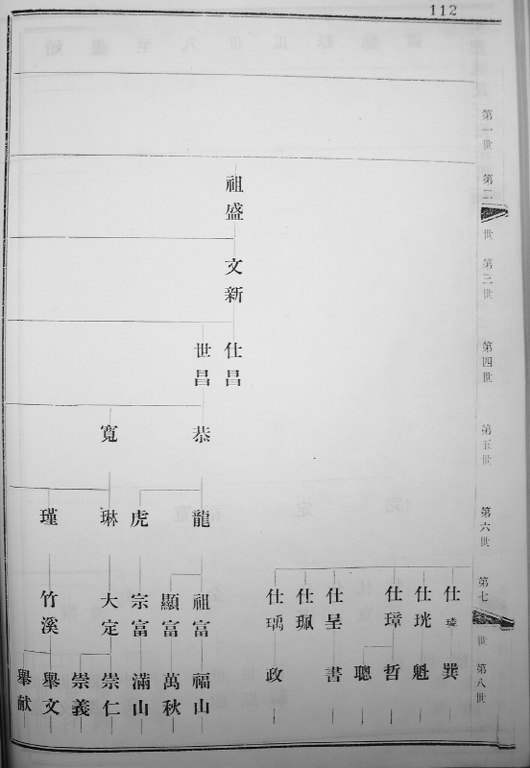 112
第一世
第二世
第三世
第四世
第五世
第六世
第七世
第八世
祖盛
文新
仕昌
世昌
恭
寬
龍
虎
琳
瑾
仕
仕珖
仕璋
仕呈
仕珮
仕瑀
祖富
顯富
宗富
大定
竹溪
巽
魁
哲
聰
書
政
福山
萬秋
滿山
崇仁
崇義
舉文
舉献